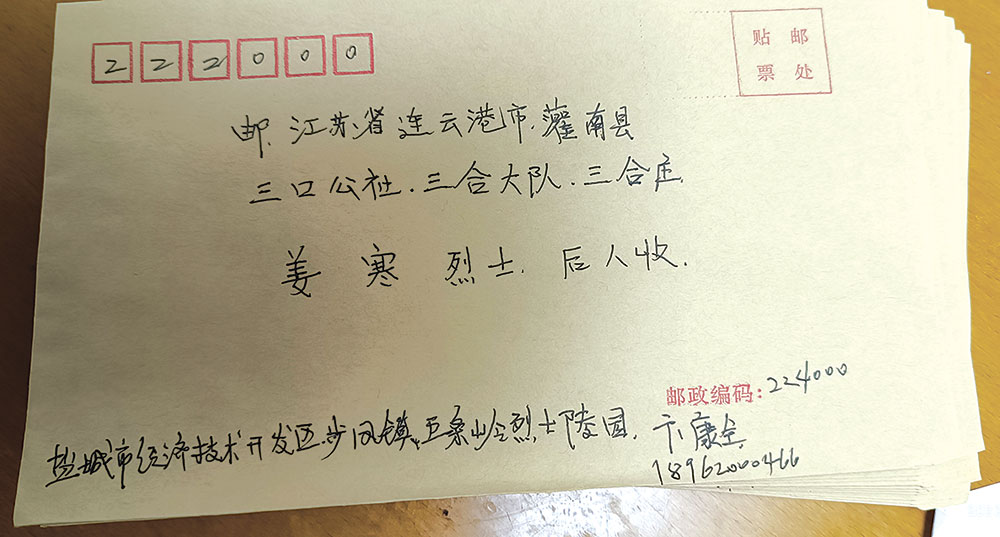 222000
贴邮
票处
邮.江苏省连云港市.灌南县
三口公社.三合大队.三合庄
姜寒烈士.后人收.
邮政编码:224000
盐城市经济技术开发区步凤镇.五条岭烈士陵园.卞康全
18962000466